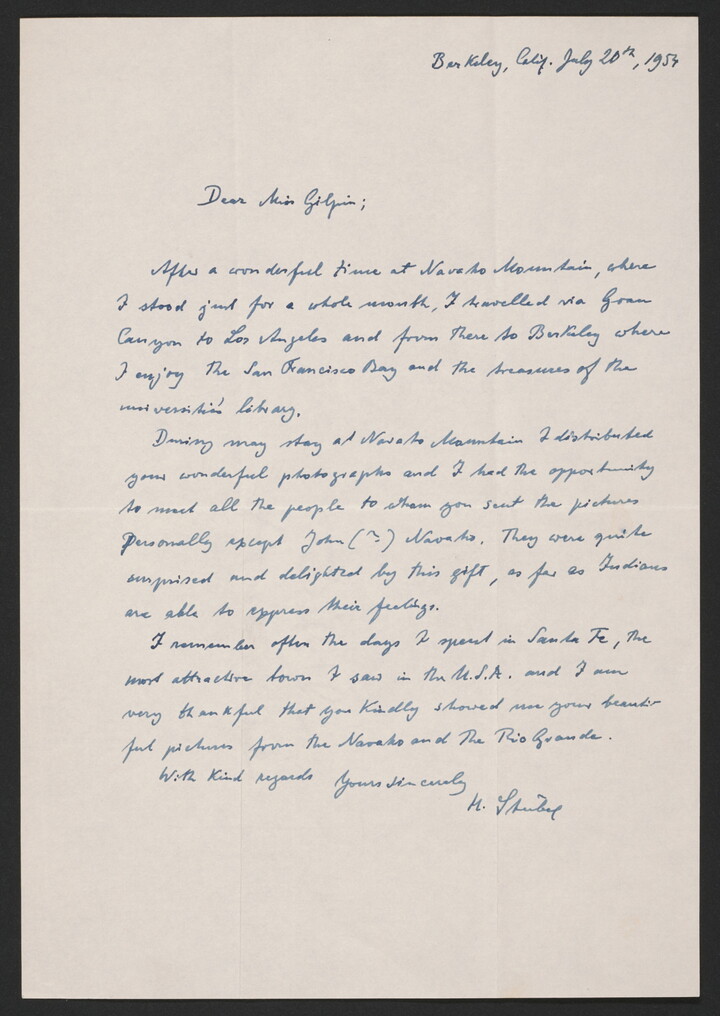 Berkeley, Calif. July 20th, 1954
Dear Miss Gilpin;
After a wonderful time at Navaho Mountain, where
I stood just for a whole month, I travelled via Gran
Canyon to Los Angeles and from there to Berkeley where
I enjoy the San Francisco Bay and the treasures of the
library.
During may stay at Navaho Mountain I distributed
your wonderful photographs and I had the opportunity
to meet all the people to whom you sent the pictures
personally except John (~) Navaho. They were quite
surprised and delighted by this gift, as far as Indians
are able to express their feelings.
I remember often the days I spent in Santa Fe, the
most attractive town I saw in the U.S.A. and I am
very thankful that you kindly showed me your beauti-
ful pictures from the Navaho and the Rio Grande.
With kind regards Yours sincerely
H. Stübel